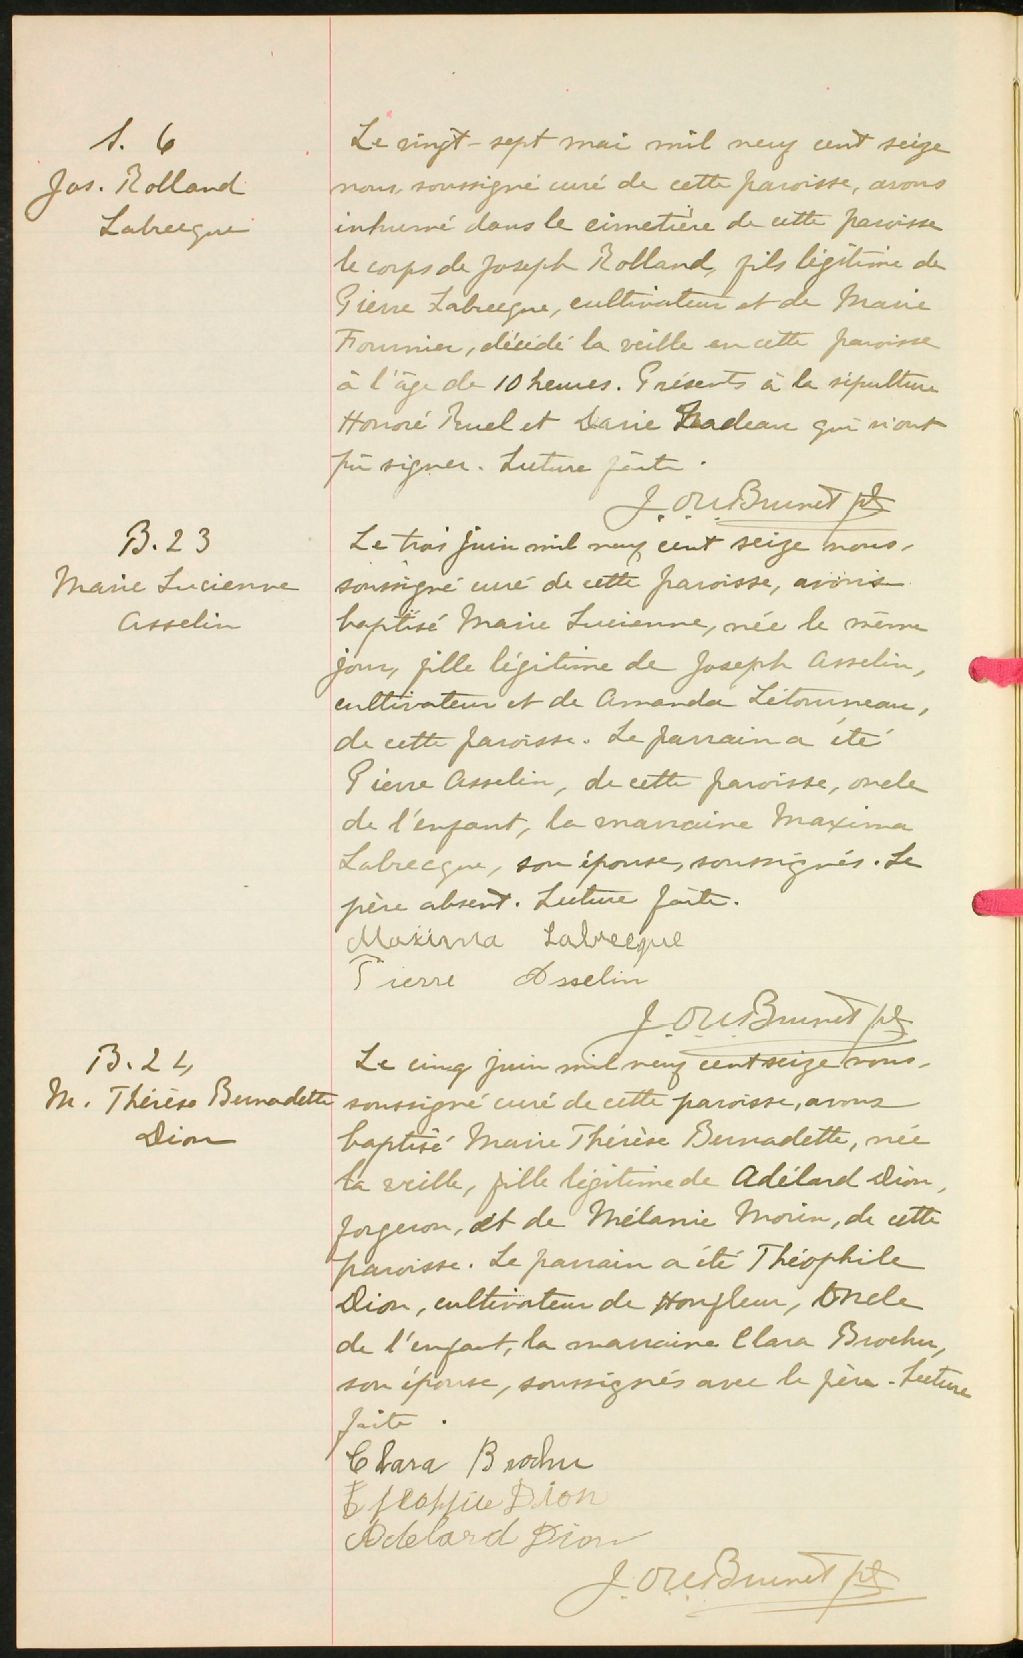 S. 6
Jos. Rolland
Labrecque
Le vingt-sept mai mil neuf cent seize
nous soussigné curé de cette paroisse, avons
inhumé dans le cimetière de cette paroisse
le corps de Joseph Rolland, fils légitime de
Pierre Labrecque, cultivateur et de Marie
Fournier, décédé la veille en cette paroisse
à l'âge de 10 heures. Présents à la sépulture
Honoré Ruel et Darie Nadeau qui n'ont
pu signer. Lecture faite.
Brunet ptr
B. 23
Marie Lucienne
Asselin
Le trois juin mil neuf cent seize nous,
soussigné curé de cette paroisse, avons
baptisé Marie Lucienne, née le même
jour, fille légitime de Joseph Asselin,
cultivateur et de Amanda Létourneau,
de cette paroisse. Le parrain a été
Pierre Asselin, de cette paroisse, oncle
de l'enfant, la marraine Maxima
Labrecque, son épouse, soussignés. Le
père absent. Lecture faite.
Maxima Labrecque
Pierre Asselin
Brunet ptr
B. 24
M. Thérèse Bernadette
Dion
Le cinq juin mil neuf cent seize nous,
soussigné curé de cette paroisse, avons
baptisé Marie Thérèse Bernadette, née
la veille, fille légitime de Adélard Dion,
forgeron, et de Mélanie Morin, de cette
paroisse. Le parrain a été Théophile
Dion, cultivateur de Honfleur, Oncle
de l'enfant, la marraine Clara Brochu,
son épouse, soussignés avec le père. Lecture
faite.
Clara Brochu
Dion
Adelard Dion
Brunet ptr